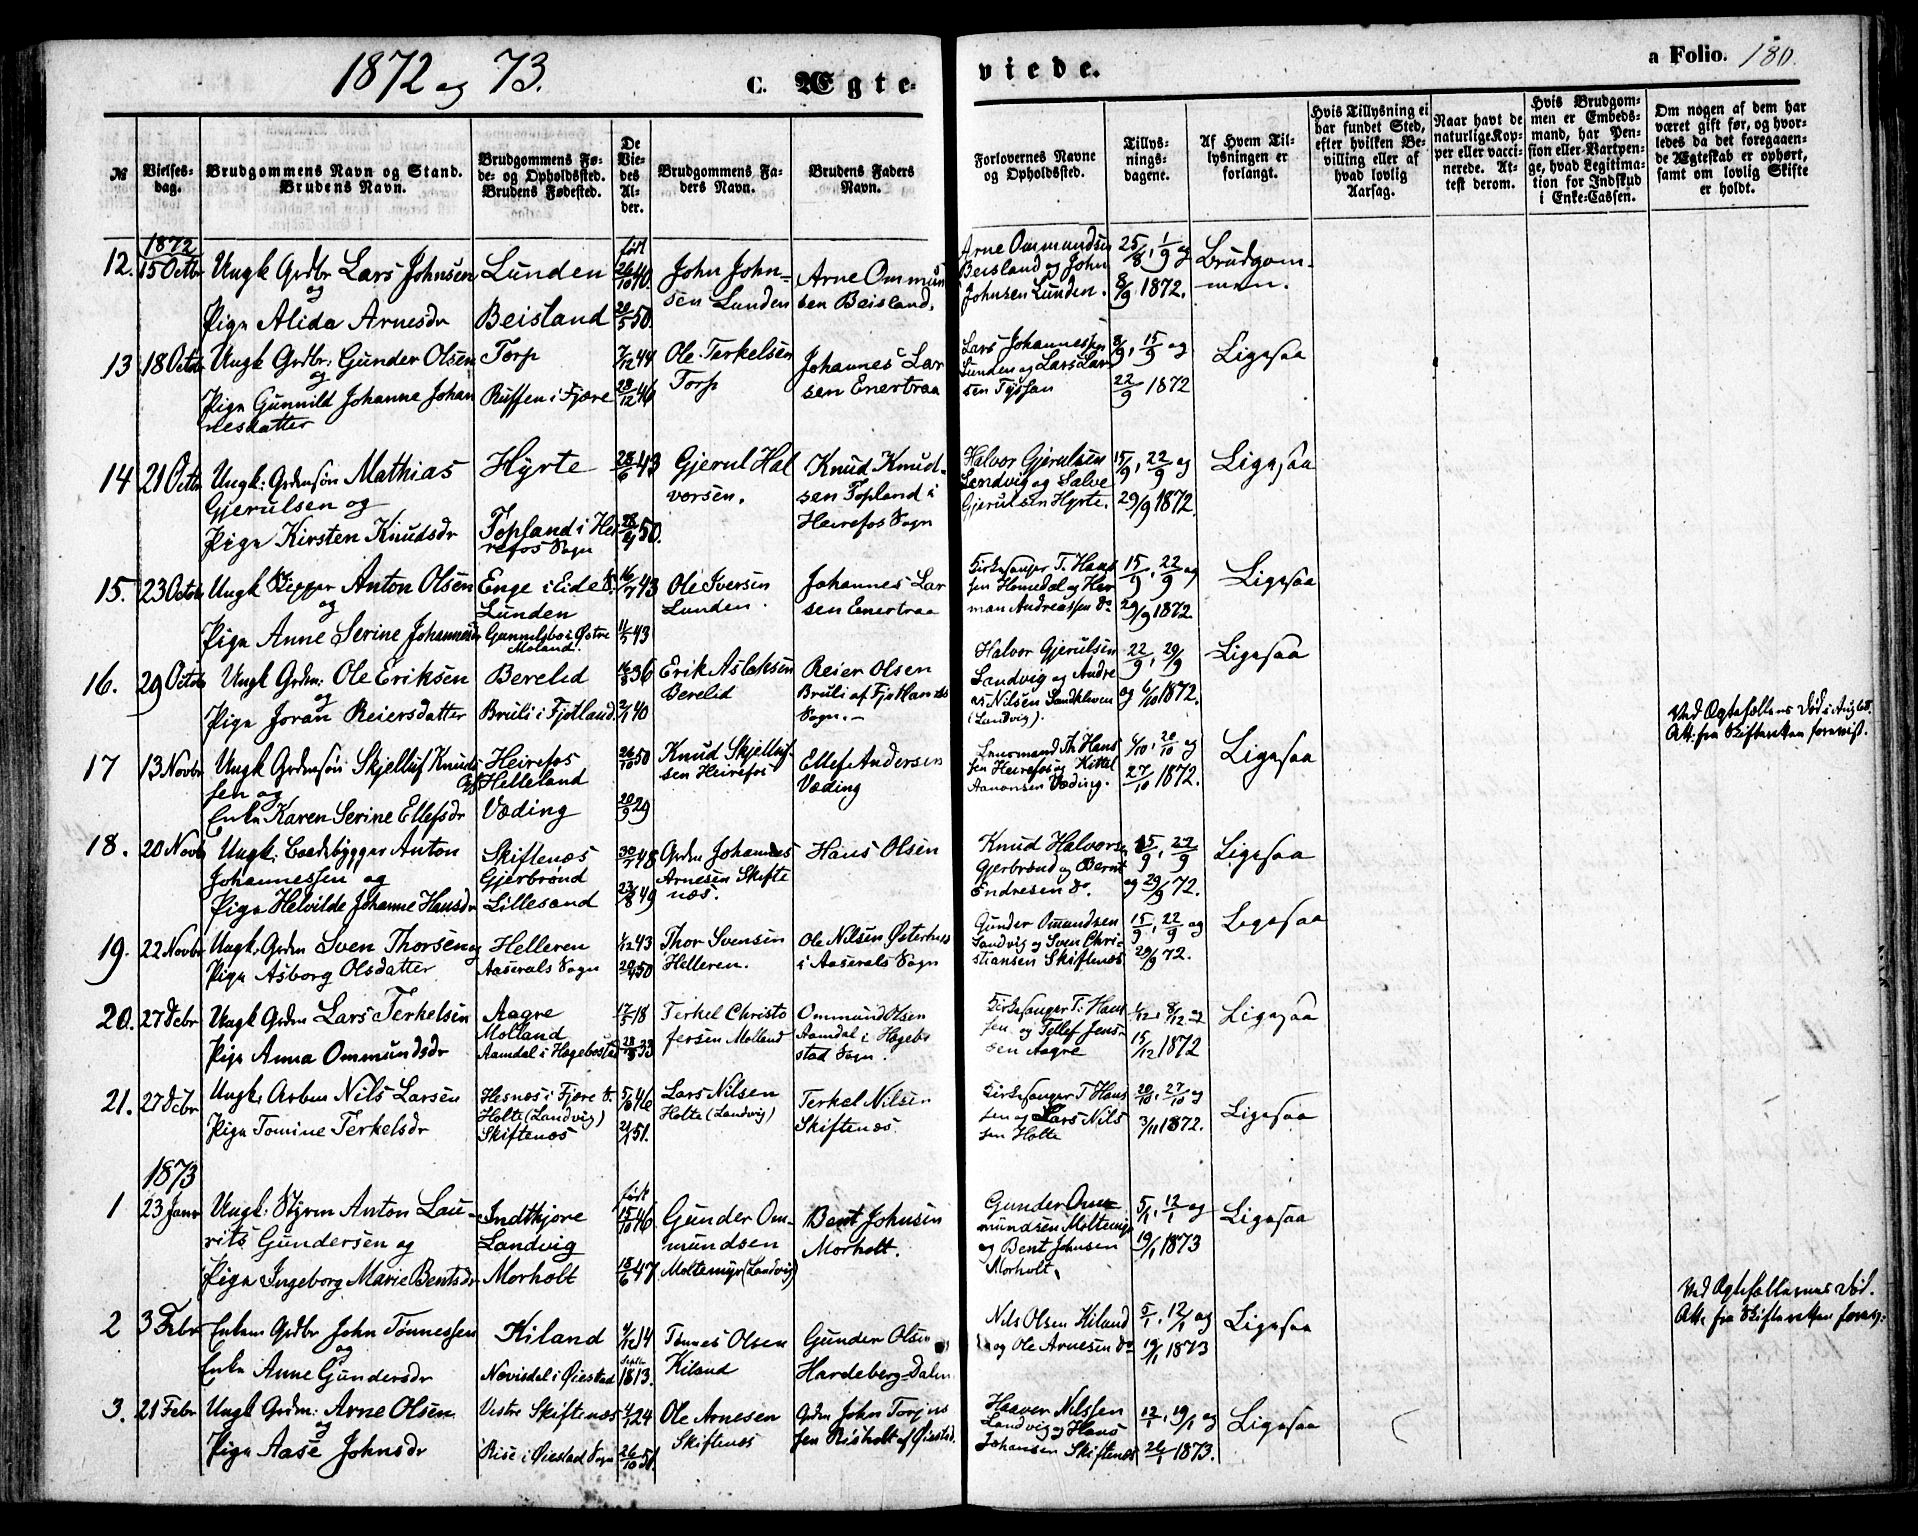 1872 og 73.
C. Ægte-
viede.
a Folio. 180.
№
Vielses-
dag.
Brudgommens Navn og Stand.
Brudens Navn.
Brudgommens Fø-
de- og Opholdssted.
Brudens Fødested.
De
Vie-
des
Al-
der.
Brudgommens Fa-
ders Navn.
Brudens Faders
Navn.
Forlovernes Navne
og Opholdssted.
Tillys-
nings-
dagene.
Af Hvem Til-
lysningen er
forlangt.
Hvis Tillysning ei
har fundet Sted,
efter hvilken Be-
villing eller af
hvad lovlig
Aarsag.
Naar havt de
naturlige Kop-
per eller vacci-
nerede. At-
test derom.
Hvis Brudgom-
men er Embeds-
mand, har Pen-
sion eller Vartpen-
ge, hvad Legitima-
tion for Indskud
i Enke-Cassen.
Om nogen af dem har
været gift før, og hvor-
ledes da det foregaaen-
de Ægteskab er ophørt,
samt om lovlig Skifte
er holdt.
1872
12. 15 Octbr Ungk Grdbr Lars Johnsen
og
Pige Alida Arnesdr
Lunden
Beisland
født
26/10 40.
20/5 50.
John John-
sen Lunden
Arne Ommun
sen Beisland.
Arne Ommundsen
Beisland og John
Johnsen Lunden.
25/8, 1/9 og
8/9 1872.
Brudgom-
men.
13 18 Octbr Ungk Grdbr: Gunder Olsen
og
Pige Gunnild Johanne Johan
nesdatter
Torp
Ruffen i Fjære
7/12 44
28/12 46
Ole Terkelsen
Torp
Johannes Lar
sen Enertraa
Lars Johannessen
Lunden og Lars Lar
sen
8/9, 15/9 og
22/9 1872
Ligesaa
14 21 Octbr Ungk: Grdmsøn Mathias
Gjerulsen og
Pige Kirsten Knudsdr
Hyrte
Topland i Hei
refos Sogn
28/6 43
50.
Gjerul Hal
vorsen.
Knud Knud-
sen Topland i
Heirefos Sogn
Halvor Gjerulsen
Landvig og Salve
Gjerulsen Hyrte.
15/9, 22/9 og
29/9 1872.
Ligesaa
15. 23 Octbr Ungk Skipper Anton Olsen
og
Pige Anne Serine Johannesdr
Enge i Eide
Lunden
i Østre
Moland.
16/7 43
11/5 43
Ole Iversen
Lunden.
Johannes Lar
sen Enertraa
Kirkesanger T. Hans
sen Homedal og Her
man Andreassen do
15/9, 22/9 og
29/9 1872.
Ligesaa
16. 29 Octbr Ungk Grdm: Ole Eriksen
og
Pige Joran Reiersdatter
Berelid
Bruli i Fjotland.
16/8 36
2/1 40
Erik Aslaksen
Berelid
Reier Olsen
Bruli af Fjotlands
Sogn.
Halvor Gjerulsen
Landvig og Andre
as Nilsen Sandkleven
(Landvig).
22/9, 29/9
og 6/10 1872.
Ligesaa
17 13 Novbr Ungk Grdmsøn Skjelluf Knud-
sen og
Enke Karen Serine Ellefsdr
Heirefos
Helleland
Væding
26/10 50
20/9 29
Knud Skjelluf-
sen Heirefos
Ellef Andersen
Væding
Lensmand Th. Hans
sen Heirefos og Kittel
Aanonsen Væding.
6/10, 20/10 og
27/10 1872.
Ligesaa
Ved Ægtefællens Død i Aug 68.
Att. fra Skifteretten forevist.
18. 20 Novbr Ungk: Baadsbygger Anton
Johannessen og
Pige Helvilde Johanne Hansdr
Skiftenæs
Gjerbrønd
Lillesand
30/7 48
23/8 49
Grdm Johannes
Arnesen Skifte
næs.
Hans Olsen
Knud Halvors
Gjerbrønd og Bernt
Endresen do.
15/9, 22/9
og 29/9 72.
Ligesaa
19. 22 Novbr Ungk: Grdm Sven Thorsen og
Pige Asborg Olsdatter
Helleren
Aaserals Sogn
1/12 43
50
Thor Svensen
Helleren.
Ole Nilsen Østerhus
i Aaserals Sogn
Gunder Omundsen
Landvig og Sven Chri-
stiansen Skiftenæs
15/9, 22/9 og
29/9 72.
Ligesaa
20. 27 Debr Ungk Grdm Lars Terkelsen
Pige Anna Ommundsdr
Aagre
Molland
Aamdal i Hægebostad
17/5 18
28/8 33
Terkel Christo
fersen Molland
Ommund Olsen
Aamdal i Hægebo
stad Sogn.
Kirkesanger T. Hans
sen og Tellef Jens-
sen Aagre
1/12, 8/12 og
15/12 1872
Ligesaa
21. 27 Debr Ungk: Arbm Nils Larsen
Pige Tomine Terkelsdr
Hesnæs i Fjære
Holte (Landvig)
Skiftenæs
5/10 46
51.
Lars Nilsen
Holte (Landvig)
Terkel Nilsen
Skiftenæs
Kirkesanger T Hans
sen og Lars Nils
sen Holte
20/10, 27/10 og
3/11 1872.
Ligesaa
1873
1 23 Janr Ungk: Styrm Anton Lau-
rits Gundersen og
Pige Ingeborg Marie Bentsdr
Indtkjøre
Landvig
Morholt
født
15/10 46
15/6 47
Gunder Om-
mundsen
Moltemyr (Landvig)
Bent Johnsen
Morholt.
Gunder Om-
mundsen Moltemyr
og Bent Johnsen
Morholt.
5/1, 12/1 og
19/1 1873
Ligesaa
2 3 Febr Enkem Grdbr John Tønnessen
og
Enke Anne Gundersdr
Kiland
i Øiestad
4/12 14
Septbr
1813.
Tønnes Olsen
Kiland
Gunder Olsen
Hardeberg-Dalen
Nils Olsen Kiland
og Ole Arnesen do
5/1, 12/1 og
19/1 1873
Ligesaa
Ved Ægtefællernes Død.
Att. fra Skifteretten forev:
3. 21 Febr Ungk Grdm: Arne Olsen
og
Pige Aase Johnsdr
Vestre Skiftenæs
Rise i Øiestad Sogn
24
26/10 51.
Ole Arnesen
Skiftenæs
Grdm John Torjus
sen Risholt af Øiestad.
Haaver Nilssen
Landvig og Hans
Johansen Skiftenæs
12/1, 19/1 og
26/1 1873.
Ligesaa